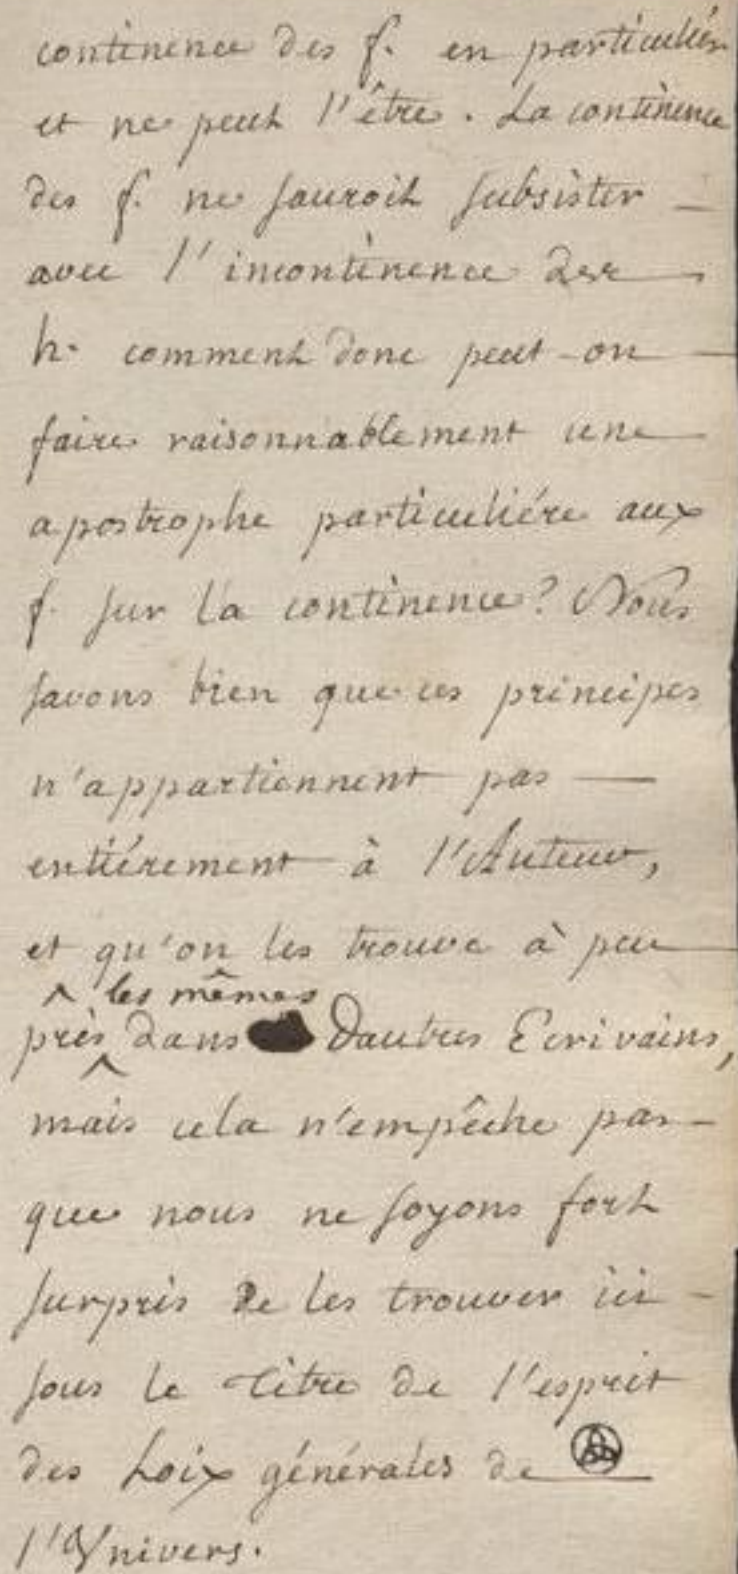 continence des f. en particulier
et ne peut l'être. La continence
des f. ne sauroit subsister
avec l'incontinence des
h. comment donc peut-on
faire raisonnablement une
apostrophe particuliére aux
f. sur la continence? Nous
savons bien que ces principes
n'appartiennent pas
entiérement à l'Auteur,
et qu'on les trouve à peu
^ les mêmes
près dans Dautres Ecrivains,
mais cela n'empêche pas
que nous ne soyons fort
surpris de les trouver ici
sous le titre de l'esprit
des Loix générales de
l'Univers.